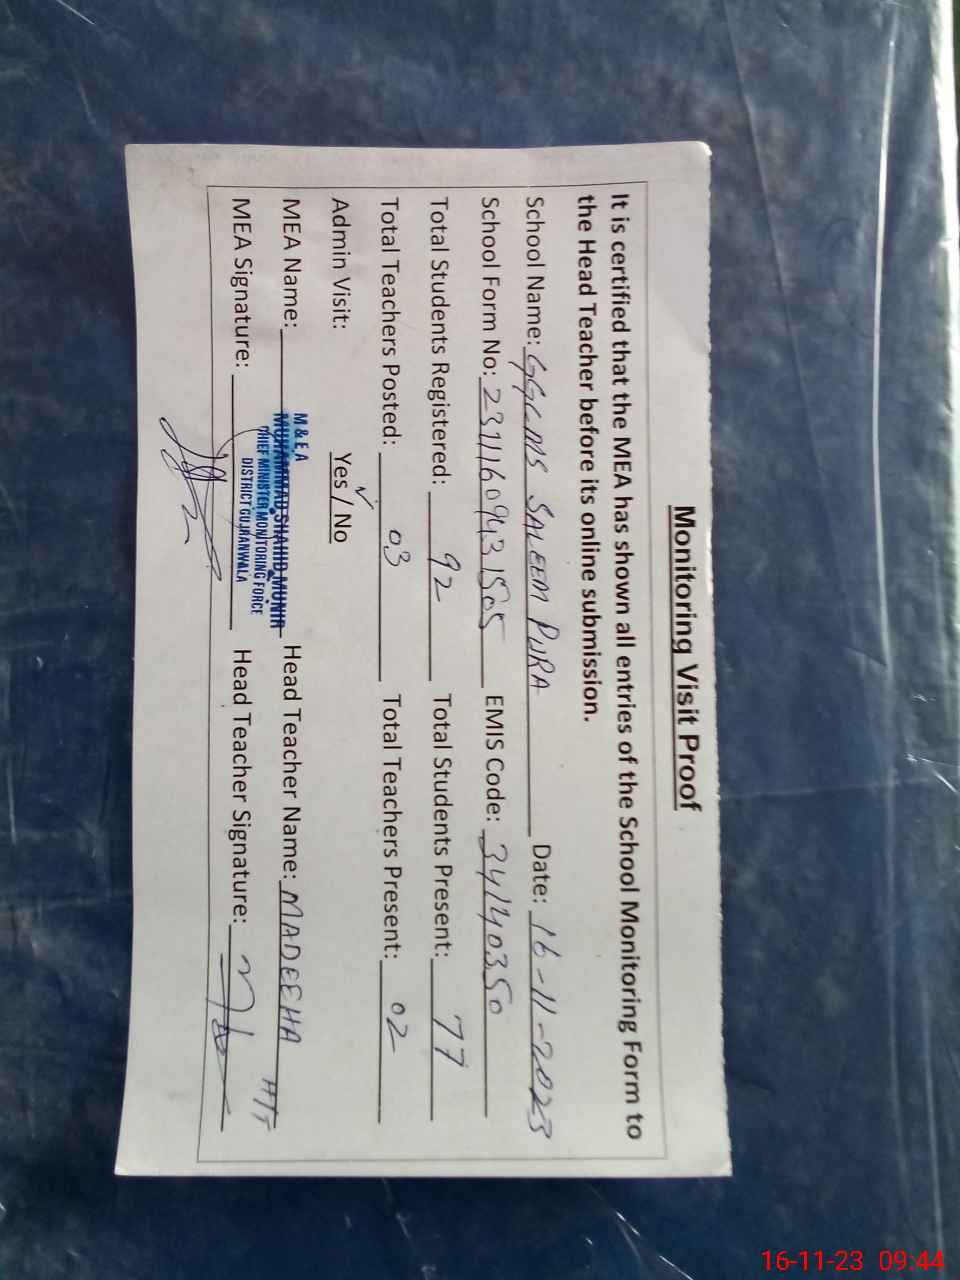 Monitoring Visit Proof
It is certified that the MEA has shown all entries of the School Monitoring Form to
the Head Teacher before its online submission.
School Name: SALEEM PURA Date: 16-11-2023
School Form No: EMIS Code: 34140350
Total Students Registered: 92 Total Students Present: 77
Total Teachers Posted: 03 Total Teachers Present: 02
Admin Visit: Yes / No
M & E A
MEA Name: MUHAMMAD SHAHID MUNIR Head Teacher Name: MADEEHA
CHIEF MINISTER MONITORING FORCE
DISTRICT GUJRANWALA
MEA Signature: Head Teacher Signature:
16-11-23 09:44